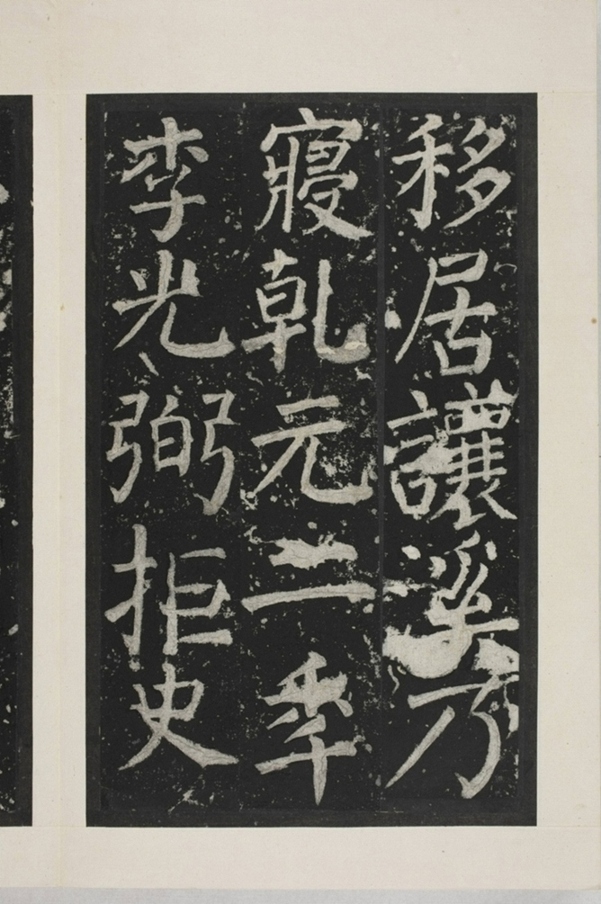 移居讓溪乃
寢乾元二秊
李光弼拒史